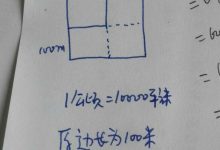 100m
1公顷=10000平方米
原边长为100米
=
=
=
=